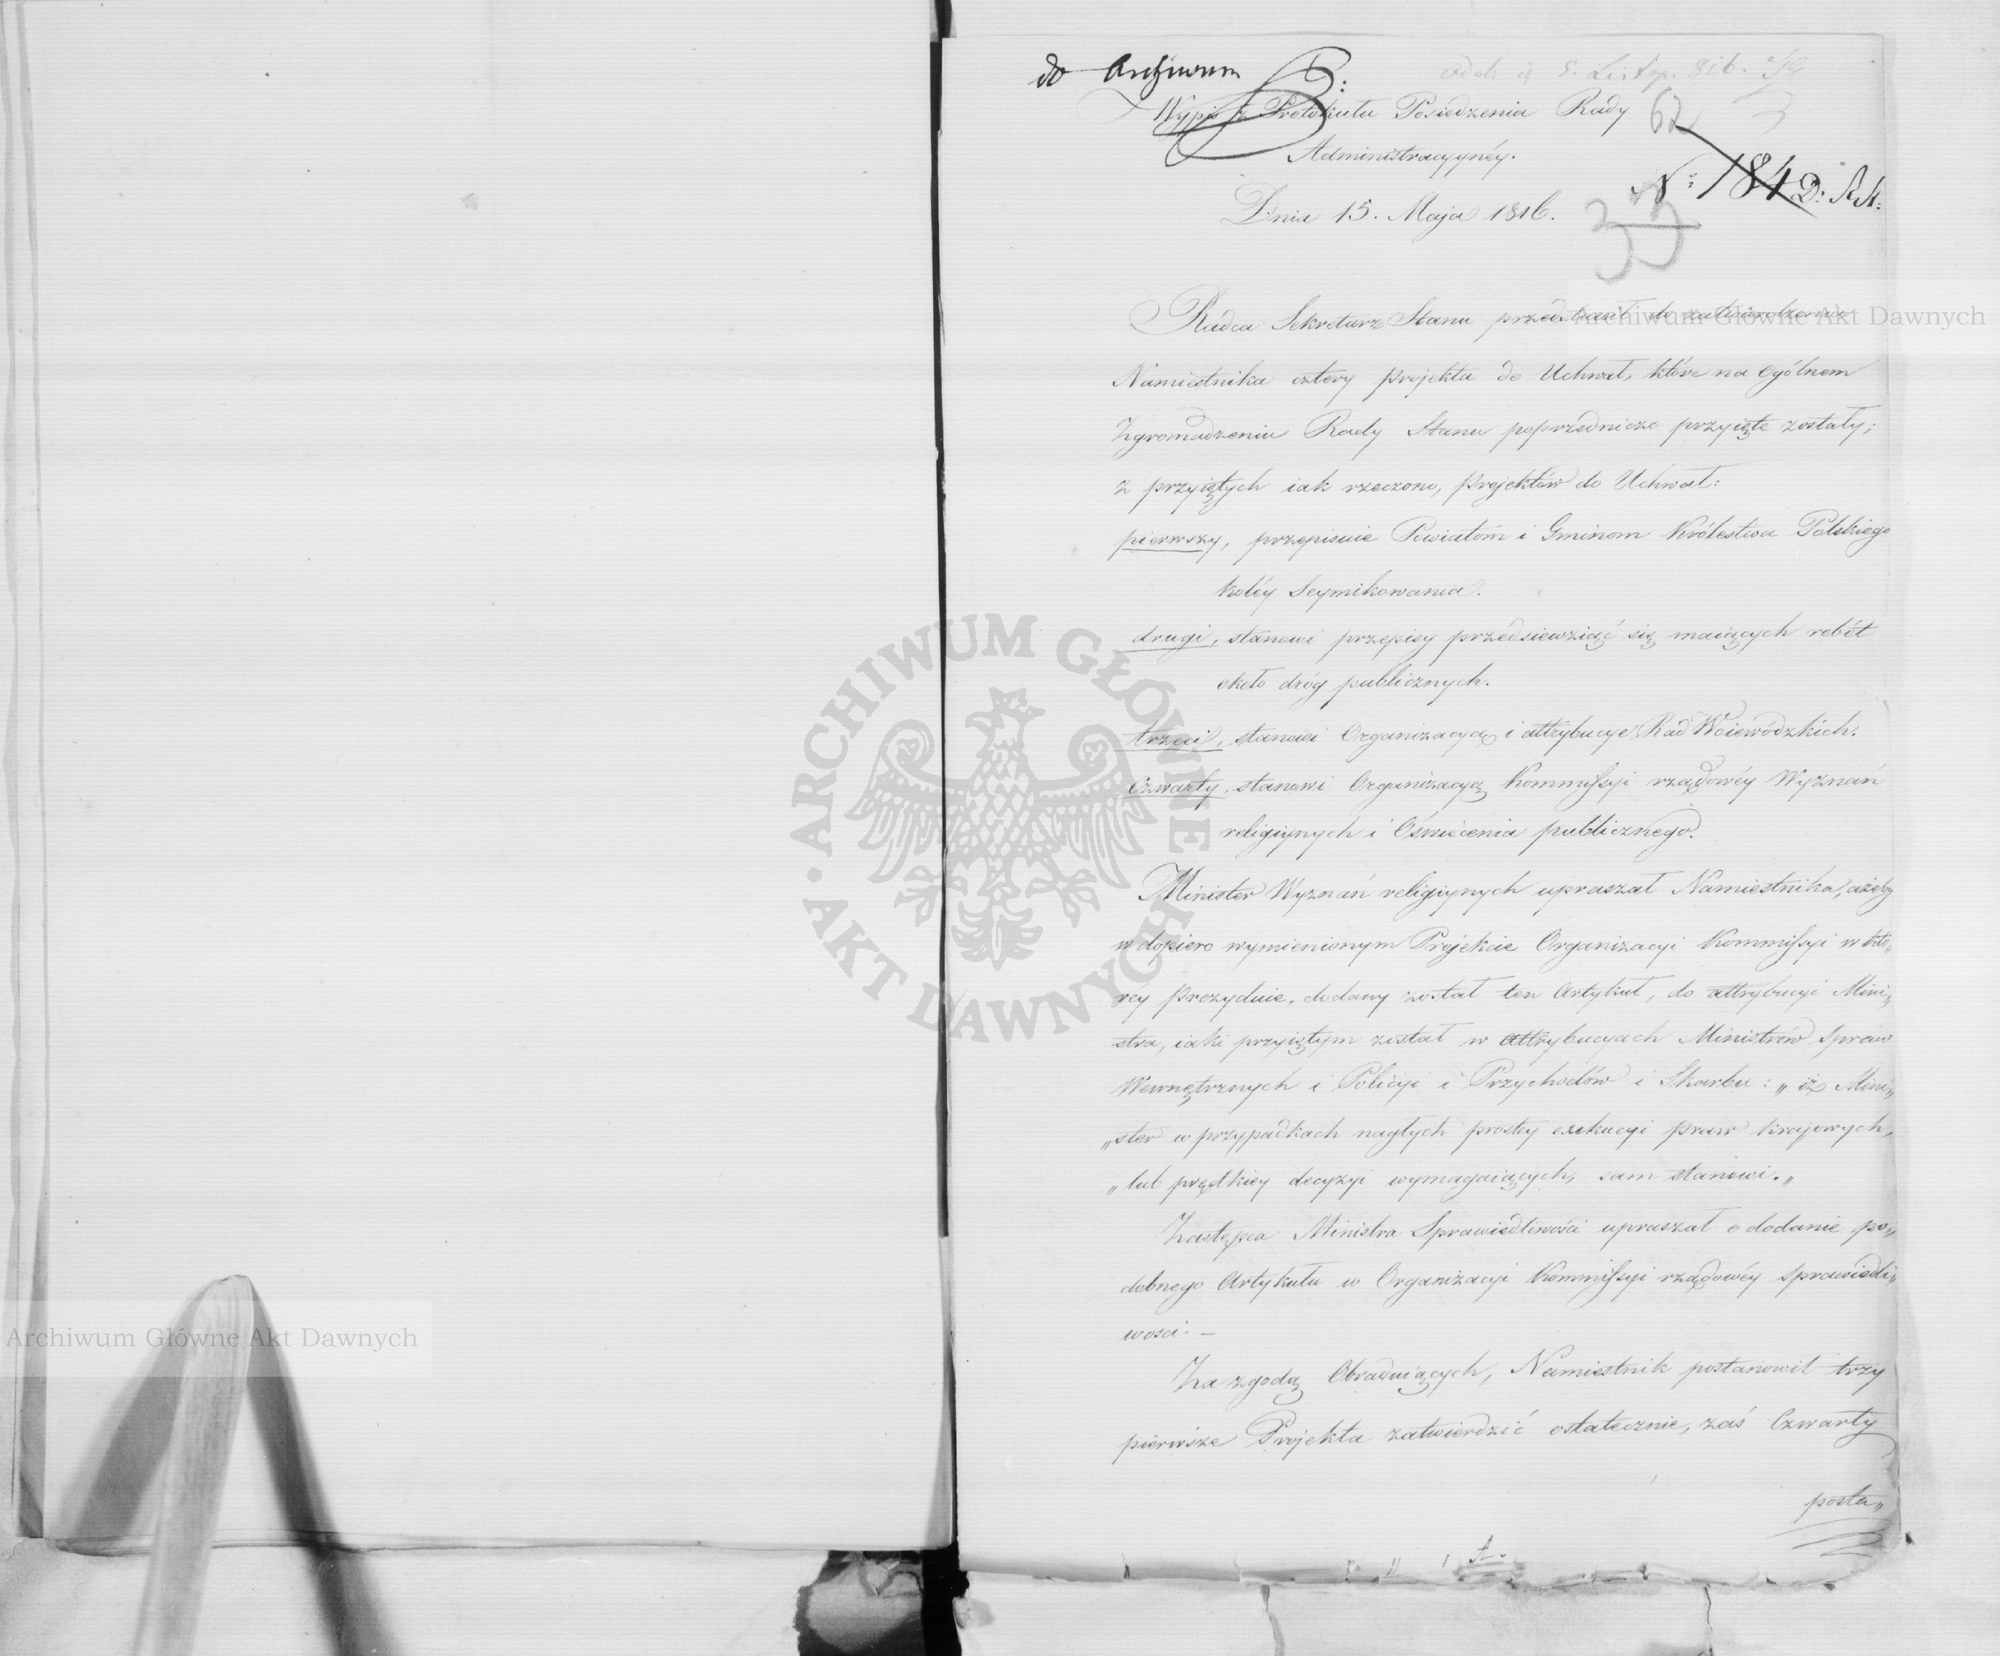 do Archiwum
odeb: 5. Listop. 816.
Wypis z Protokułu Posiedzenia Rady
62
Administracyynéy.
N: 184 D: R A:
Dnia 15. Maja 1816.
Radca Sekretarz Stanu przedstawił do zatwierdzenia
Archiwum Główne Akt Dawnych
Namiestnika cztery projekta do Uchwał, które na ogólnem
Zgromadzeniu Rady Stanu poprzedniczo przyięte zostały;
z przyiętych iak rzeczono, Projektów do Uchwał:
pierwszy, przepisuie Powiatóm i Gminom Królestwa Polskiego
koléy Seymikowania.
drugi, stanowi przepisy przedsiewziąć się maiących robót
około dróg publicznych.
trzeci, stanowi Organizacyą i attrybucye Rad Woiewódzkich.
Czwarty, stanowi Organizacyą Kommissyi rządowéy Wyznań
religiynych i Oświécenia publicznego.
Minister Wyznań religiynych upraszał Namiestnika, ażeby
w dopiero wymienionym Projekcie Organizacyi Kommissyi w któ„
réy prezyduie, dodany został ten Artykuł, do attrybucyi Mini„
stra, iaki przyiętym został w attrybucyach Ministrów Spraw
Wewnętrznych i Policyi i Przychodów i Skarbu: „iż Mini„
„ster w przypadkach nagłych prostey exekucyi praw krajowych,
„lub prędkiey decyzyi wymagaiących, sam stanowi.„
Zastępca Ministra Sprawiedliwości upraszał o dodanie po„
dobnego Artykułu w Organizacyi Kommissyi rządowéy Sprawiedli„
wosci. —
Archiwum Główne Akt Dawnych
Za zgodą Obraduiących, Namiestnik postanowił trzy
pierwsze Projekta zatwierdzić ostatecznie, zaś Czwarty
posta„
ARCHIWUM GŁÓWNE AKT DAWNYCH